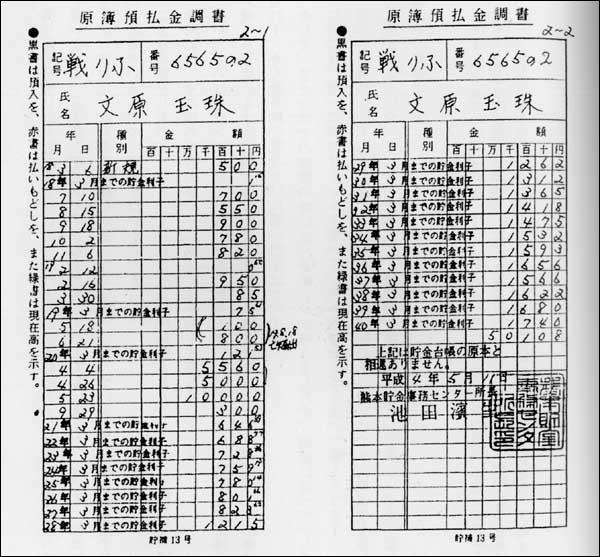 原簿預払金調書
2~1
●黒書は預入を、赤書は払いもどしを、また緑書は現在高を示す。●
記号 戦りふ 番号 656502
氏名 文原玉珠
年月日 種別 金額
百十万千百十円
18 3 6 新規 500
18年3月までの貯金利子
7 10 700
8 15 550
9 18 900
10 2 780
11 6 820
19 2 12
2 16 950
3 30 85
19年3月までの貯金利子 75
5 18 100
6 21 800
20年3月までの貯金利子 121
4 4 5560
4 26 5000
5 23 10000
9 29 300
21年3月までの貯金利子
22年3月までの貯金利子 688
23年3月までの貯金利子 728
24年3月までの貯金利子 759
25年3月までの貯金利子 780
26年3月までの貯金利子 801
27年3月までの貯金利子 823
28年3月までの貯金利子 1215
貯補13号
原簿預払金調書
2~2
●黒書は預入を、赤書は払いもどしを、また緑書は現在高を示す。●
記号 戦りふ 番号 656502
氏名 文原玉珠
年月日 種別 金額
百十万千百十円
29年3月までの貯金利子 1262
30年3月までの貯金利子 1312
31年3月までの貯金利子 1365
32年3月までの貯金利子 1418
33年3月までの貯金利子 1475
34年3月までの貯金利子 1532
35年3月までの貯金利子 1593
36年3月までの貯金利子 1656
37年3月までの貯金利子 1566
38年3月までの貯金利子 1622
39年3月までの貯金利子 1680
40年3月までの貯金利子 1740
50108
上記は貯金台帳の原本と
相違ありません。
平成4年5月11日
熊本貯金事務センター所長
池田濱
貯補13号